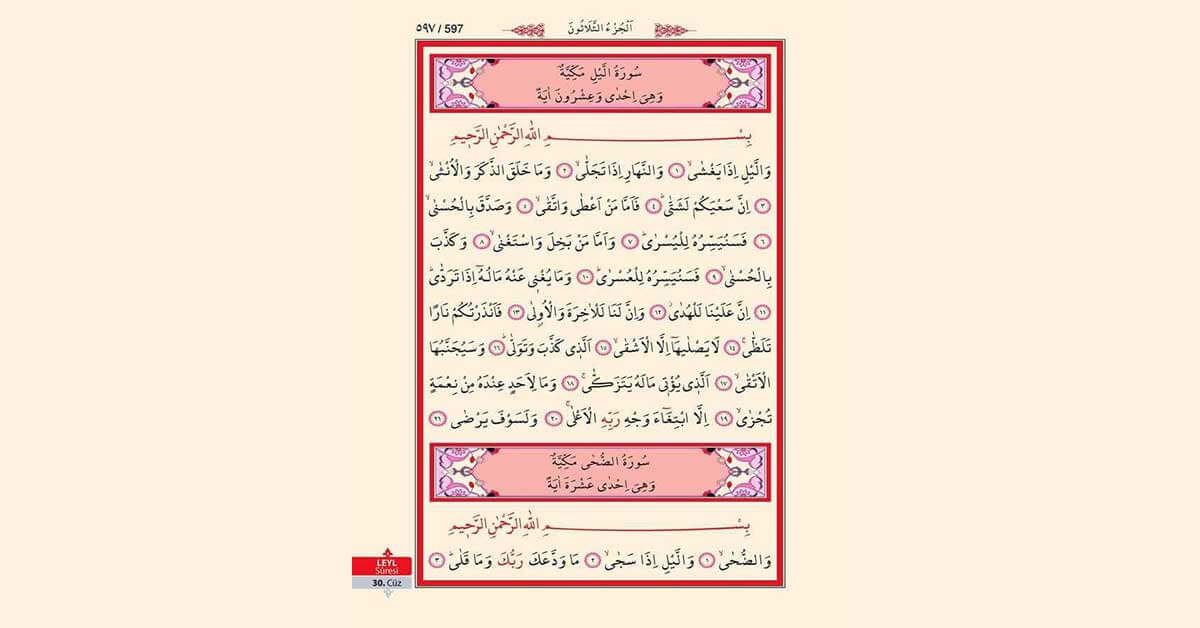 ٥٩٧ / 597
اَلْجُزْءُ الثَّلَاثُونَ
سُورَةُ الَّيْلِ مَكِّيَّةٌ
وَهِيَ اِحْدٰى وَعِشْرُونَ اٰيَةً
بِسْمِ اللّٰهِ الرَّحْمٰنِ الرَّحِيمِ
وَالَّيْلِ اِذَا يَغْشٰىۙ ﴿١﴾ وَالنَّهَارِ اِذَا تَجَلّٰىۙ ﴿٢﴾ وَمَا خَلَقَ الذَّكَرَ وَالْاُنْثٰىۙ
﴿٣﴾ اِنَّ سَعْيَكُمْ لَشَتّٰىۜ ﴿٤﴾ فَاَمَّا مَنْ اَعْطٰى وَاتَّقٰىۙ ﴿٥﴾ وَصَدَّقَ بِالْحُسْنٰىۙ
﴿٦﴾ فَسَنُيَسِّرُهُ لِلْيُسْرٰىۜ ﴿٧﴾ وَاَمَّا مَنْ بَخِلَ وَاسْتَغْنٰىۙ ﴿٨﴾ وَكَذَّبَ
بِالْحُسْنٰىۙ ﴿٩﴾ فَسَنُيَسِّرُهُ لِلْعُسْرٰىۜ ﴿١٠﴾ وَمَا يُغْنِي عَنْهُ مَالُهُٓ اِذَا تَرَدّٰىۜ
﴿١١﴾ اِنَّ عَلَيْنَا لَلْهُدٰىۘ ﴿١٢﴾ وَاِنَّ لَنَا لَلْاٰخِرَةَ وَالْاُو۫لٰى ﴿١٣﴾ فَاَنْذَرْتُكُمْ نَارًا
تَلَظّٰىۚ ﴿١٤﴾ لَا يَصْلٰيهَٓا اِلَّا الْاَشْقٰىۙ ﴿١٥﴾ اَلَّذِي كَذَّبَ وَتَوَلّٰىۜ ﴿١٦﴾ وَسَيُجَنَّبُهَا
الْاَتْقٰىۙ ﴿١٧﴾ اَلَّذِي يُؤْتِي مَالَهُ يَتَزَكّٰىۚ ﴿١٨﴾ وَمَا لِاَحَدٍ عِنْدَهُ مِنْ نِعْمَةٍ
تُجْزٰىۙ ﴿١٩﴾ اِلَّا ابْتِغَٓاءَ وَجْهِ رَبِّهِ الْاَعْلٰىۚ ﴿٢٠﴾ وَلَسَوْفَ يَرْضٰى ﴿٢١﴾
سُورَةُ الضُّحٰى مَكِّيَّةٌ
وَهِيَ اِحْدٰى عَشْرَةَ اٰيَةً
بِسْمِ اللّٰهِ الرَّحْمٰنِ الرَّحِيمِ
وَالضُّحٰىۙ ﴿١﴾ وَالَّيْلِ اِذَا سَجٰىۙ ﴿٢﴾ مَا وَدَّعَكَ رَبُّكَ وَمَا قَلٰىۜ ﴿٣﴾
LEYL
Sûresi
30. Cüz